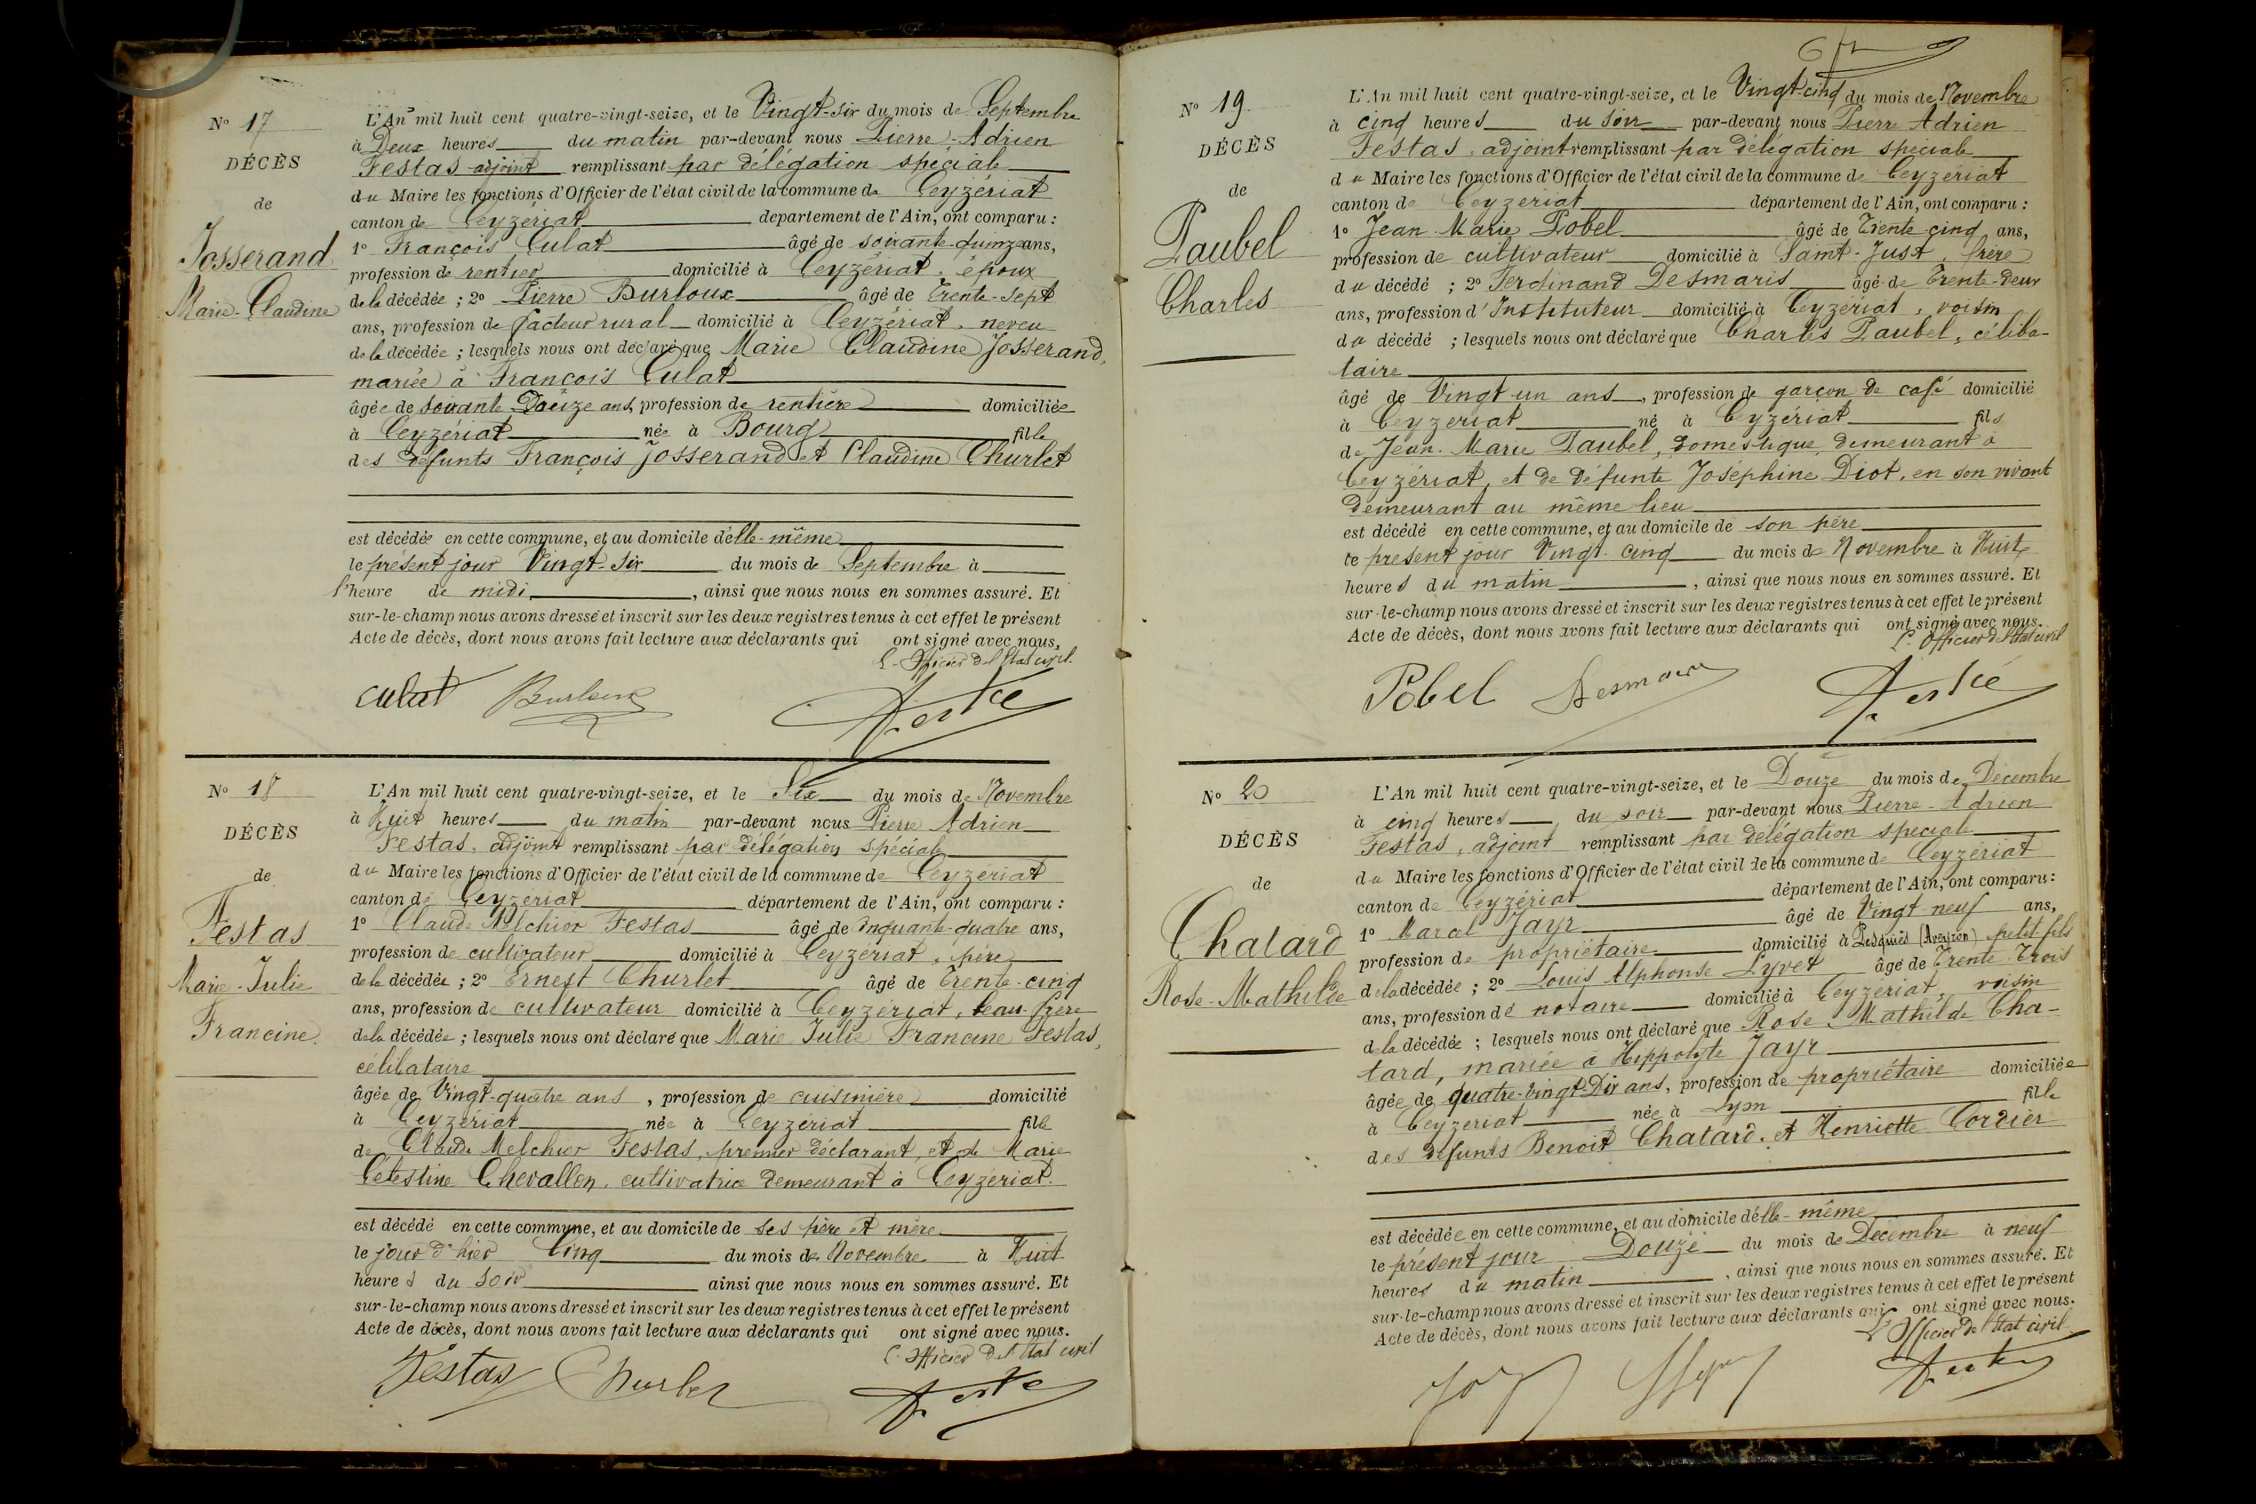 N° 17
DÉCÈS
de
Josserand
Marie-Claudine
L'An mil huit cent quatre-vingt-seize, et le Vingt-six du mois de Septembre
à Deux heures du matin par-devant nous Pierre-Adrien
Festas adjoint remplissant par délégation spéciale
du Maire les fonctions d'Officier de l'état civil de la commune de Ceyzériat
canton de Ceyzériat département de l'Ain, ont comparu :
1° François Culat âgé de soixante-quinze ans,
profession de rentier domicilié à Ceyzériat, époux
de la décédée ; 2° Pierre Burloux âgé de Trente-sept
ans, profession de facteur rural domicilié à Ceyzériat, neveu
de la décédée ; lesquels nous ont déclaré que Marie Claudine Josserand,
mariée à François Culat
âgée de soixante ans, profession de rentière domiciliée
à Ceyzériat née à Bourg fille
des défunts François Josserand et Claudine Churlet
est décédée en cette commune, et au domicile d'elle-même
le présent jour Vingt-six du mois de Septembre à
l'heure de midi, ainsi que nous nous en sommes assuré. Et
sur-le-champ nous avons dressé et inscrit sur les deux registres tenus à cet effet le présent
Acte de décès, dont nous avons fait lecture aux déclarants qui ont signé avec nous,
L'Officier de l'Etat civil.
Culat Burloux
N° 18
DÉCÈS
de
Festas
Marie-Julie
Francine.
L'An mil huit cent quatre-vingt-seize, et le Six du mois de Novembre
à Huit heures du matin par-devant nous Pierre Adrien
Festas, adjoint remplissant par délégation spéciale
du Maire les fonctions d'Officier de l'état civil de la commune de Ceyzériat
canton de Ceyzériat département de l'Ain, ont comparu :
1° Claude Melchior Festas âgé de Cinquante-quatre ans,
profession de cultivateur domicilié à Ceyzériat, père
de la décédée ; 2° Ernest Churlet âgé de Trente-cinq
ans, profession de cultivateur domicilié à Ceyzériat, beau-frère
de la décédée ; lesquels nous ont déclaré que Marie Julie Francine Festas,
célibataire
âgée de Vingt-quatre ans, profession de cuisinière domicilié
à Ceyzériat née à Ceyzériat fille
de Claude Melchior Festas, premier déclarant, et de Marie
Célestine Chevallon, cultivatrice demeurant à Ceyzériat.
est décédé en cette commune, et au domicile de ses père et mère
le jour d'hier Cinq du mois de Novembre à Huit
heures du soir ainsi que nous nous en sommes assuré. Et
sur-le-champ nous avons dressé et inscrit sur les deux registres tenus à cet effet le présent
Acte de décès, dont nous avons fait lecture aux déclarants qui ont signé avec nous.
L'Officier de l'Etat civil
Festas Churlet
N° 19
DÉCÈS
de
Paubel
Charles
L'An mil huit cent quatre-vingt-seize, et le Vingt-cinq du mois de Novembre
à cinq heures du soir par-devant nous Pierre Adrien
Festas, adjoint remplissant par délégation spéciale
du Maire les fonctions d'Officier de l'état civil de la commune de Ceyzériat
canton de Ceyzériat département de l'Ain, ont comparu :
1° Jean-Marie Pobel âgé de Trente-cinq ans,
profession de cultivateur domicilié à Saint-Just, frère
du décédé ; 2° Ferdinand Desmaris âgé de Trente-deux
ans, profession d'Instituteur domicilié à Ceyzériat, voisin
du décédé ; lesquels nous ont déclaré que Charles Paubel, céliba-
taire
âgé de Vingt-un ans, profession de garçon de café domicilié
à Ceyzériat né à Ceyzériat fils
de Jean-Marie Paubel, domestique, demeurant à
Ceyzériat, et de défunte Joséphine Diot, en son vivant
demeurant au même lieu
est décédé en cette commune, et au domicile de son père
le présent jour Vingt-cinq du mois de Novembre à Huit
heures du matin, ainsi que nous nous en sommes assuré. Et
sur-le-champ nous avons dressé et inscrit sur les deux registres tenus à cet effet le présent
Acte de décès, dont nous avons fait lecture aux déclarants qui ont signé avec nous.
L'Officier de l'Etat civil
Pobel Desmaris
N° 20
DÉCÈS
de
Chatard
Rose-Mathilde
L'An mil huit cent quatre-vingt-seize, et le Douze du mois de Décembre
à cinq heures du soir par-devant nous Pierre-Adrien
Festas, adjoint remplissant par délégation spéciale
du Maire les fonctions d'Officier de l'état civil de la commune de Ceyzériat
canton de Ceyzériat département de l'Ain, ont comparu :
1° Jayr âgé de Vingt-neuf ans,
profession de propriétaire domicilié à (Aveyron), petit fils
de la décédée ; 2° Louis Alphonse Lyvet âgé de Trente-Trois
ans, profession de notaire domicilié à Ceyzériat, voisin
de la décédée ; lesquels nous ont déclaré que Rose-Mathilde Cha-
tard, mariée à Hippolyte Jayr
âgée de quatre-vingt-Dix ans, profession de propriétaire domiciliée
à Ceyzériat née à Lyon fille
des défunts Benoit Chatard et Henriette Cordier
est décédée en cette commune, et au domicile d'elle-même
le présent jour Douze du mois de Décembre à neuf
heures du matin, ainsi que nous nous en sommes assuré. Et
sur-le-champ nous avons dressé et inscrit sur les deux registres tenus à cet effet le présent
Acte de décès, dont nous avons fait lecture aux déclarants qui ont signé avec nous.
L'Officier de l'Etat civil